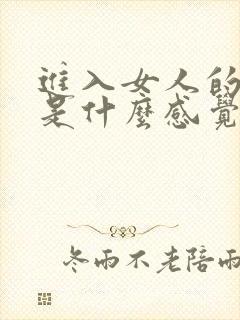 進入女人的
是什麼感覺
冬雨不老陪雨